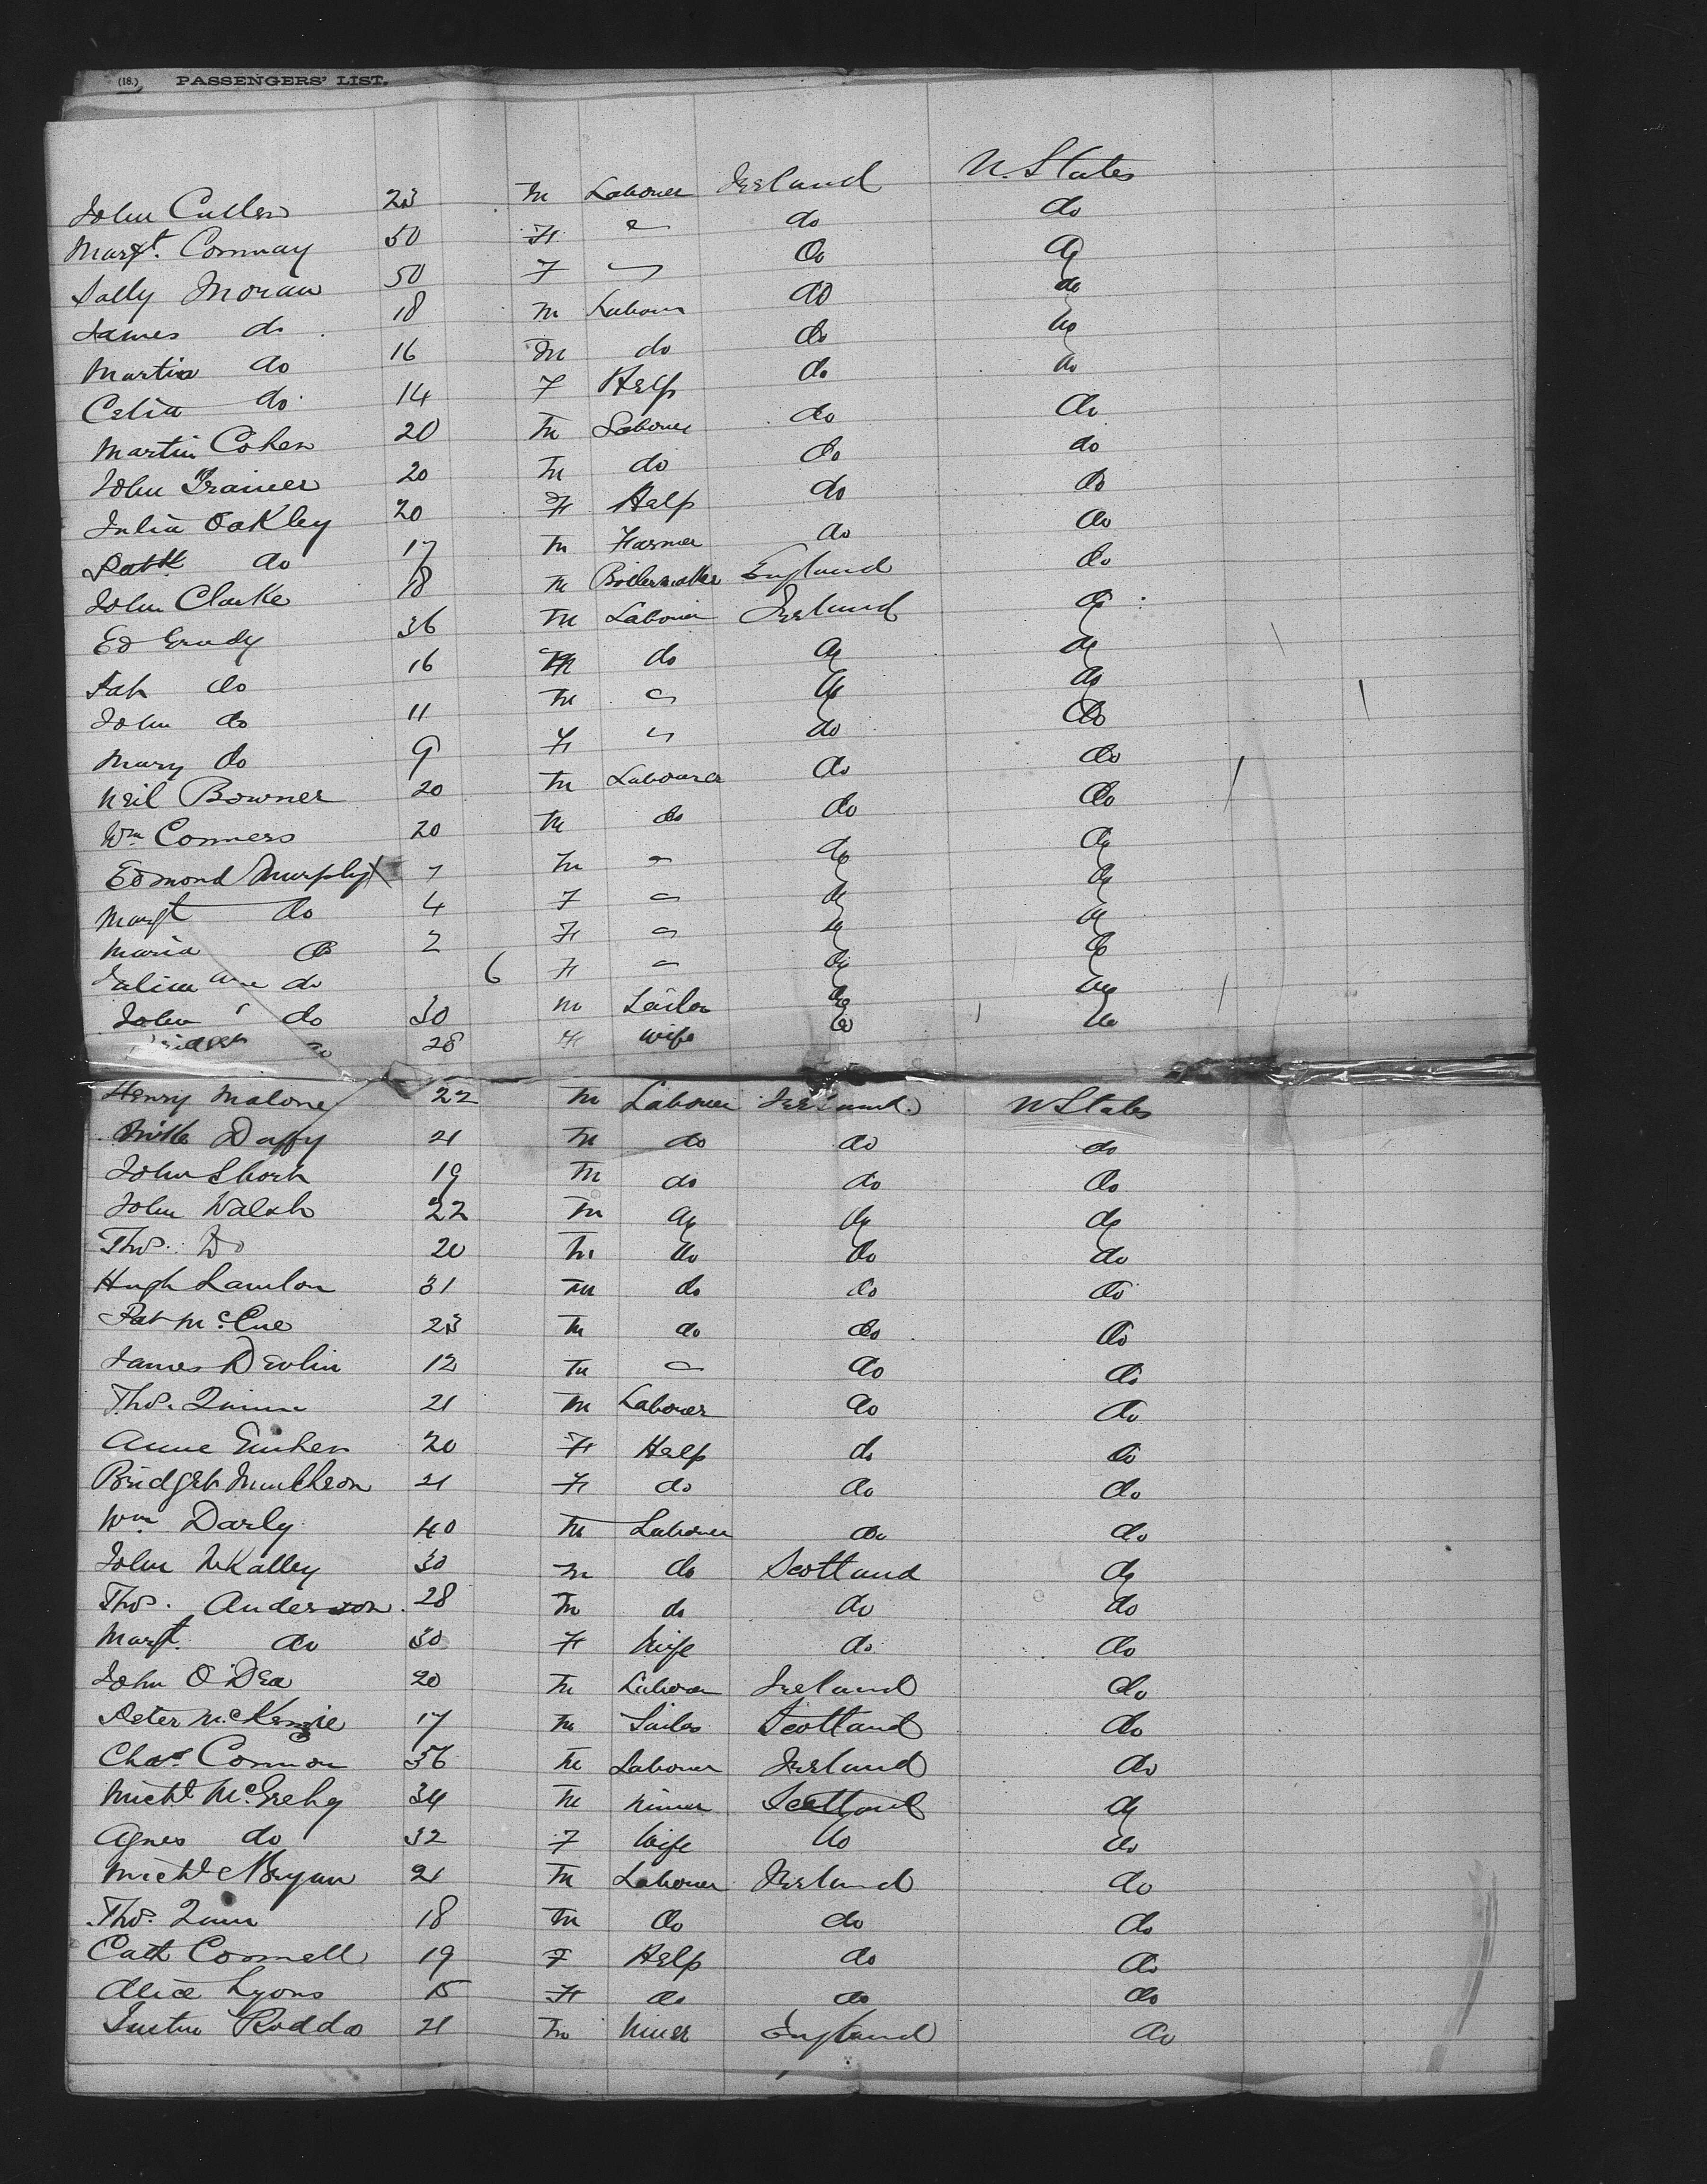 (18.) PASSENGERS' LIST.
John Cullen 23 M Labourer Ireland U. States
Margt. Conway 50 F " do do
Sally Moran 50 F " do do
James do 18 M Labourer do do
Martin do 16 M do do do
Celia do 14 F Help do do
Martin Cohen 20 M Labourer do do
John Trainer 20 M do do do
Julia Oakley 20 F Help do do
Patk do 17 M Farmer do do
John Clarke 18 M Boilermaker England do
Ed Grady 36 M Labourer Ireland do
Pat do 16 M do do do
John do 11 M " do do
Mary do 9 F " do do
Neil Bowner 20 M Labourer do do
Wm Conners 20 M do do do
Edmond Murphy 7 M " do do
Margt do 4 F " do do
Maria do 2 F " do do
Ann do 6 F " do do
John do 30 M Sailor do do
Bridget do 28 F Wife do do
Henry Malone 22 M Labourer Ireland U States
Duffy 21 M do do do
John Short 19 M do do do
John Walsh 22 M do do do
Thos. Do 20 M do do do
Hugh Lawlor 31 M do do do
Pat McCue 23 M do do do
James Devlin 12 M " do do
Thos. Quinn 21 M Labourer do do
Anne 20 F Help do do
Bridget 21 F do do do
Wm Darly 40 M Labourer do do
John McKalley 30 M do Scotland do
Thos. Anderson 28 M do do do
Margt. do 30 F Wife do do
John O'Dea 20 M Labourer Ireland do
Peter McKenzie 17 M Sailor Scotland do
Chas. Connon 36 M Labourer Ireland do
Michl. McGrehy 34 M Miner Scotland do
Agnes do 32 F Wife do do
Michl 21 M Labourer Ireland do
Thos. Quinn 18 M do do do
Cath Connell 19 F Help do do
Alice Lyons 15 F do do do
Rodda 21 M Miner England do